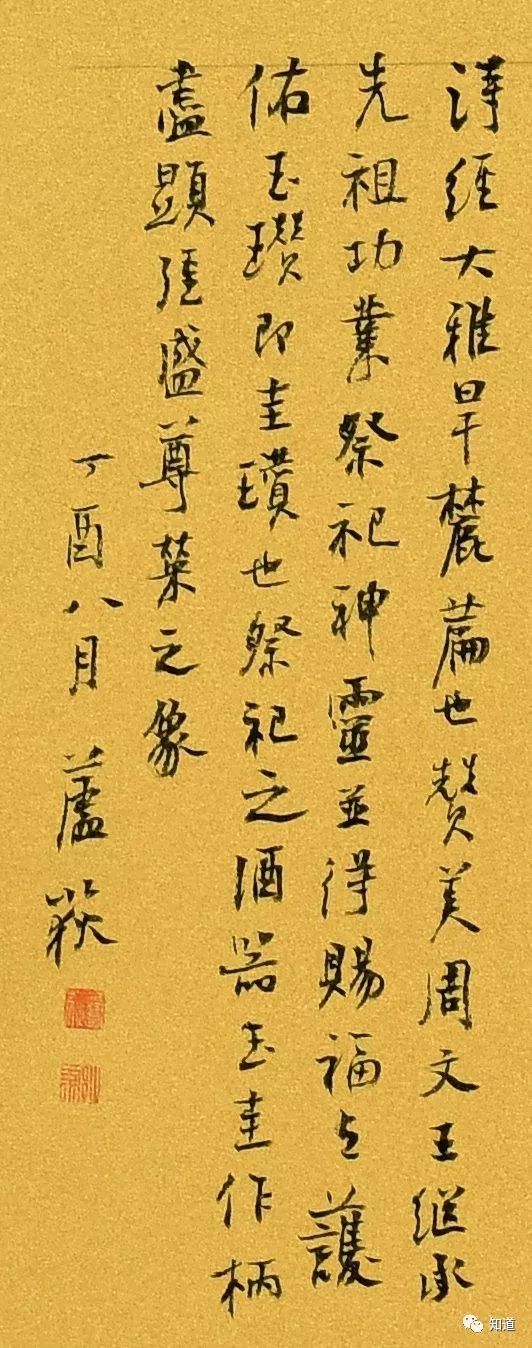 詩經大雅旱麓篇也贊美周文王继承
先祖功業祭祀神靈並得賜福与護
佑玉瓚即圭瓚也祭祀之酒器玉圭作柄
盡顯强盛尊荣之象
丁酉八月 蘆荻
知道